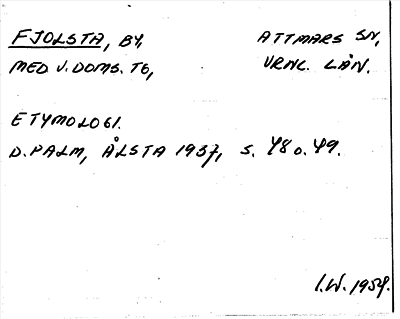 FJOLSTA, BY, ATTMARS SN,
MED. V. DOMS. TG, VRNL. LÄN.
ETYMOLOGI.
D. PALM, ÅLSTA 1937, S. 48 o. 49.
I.W. 1954.